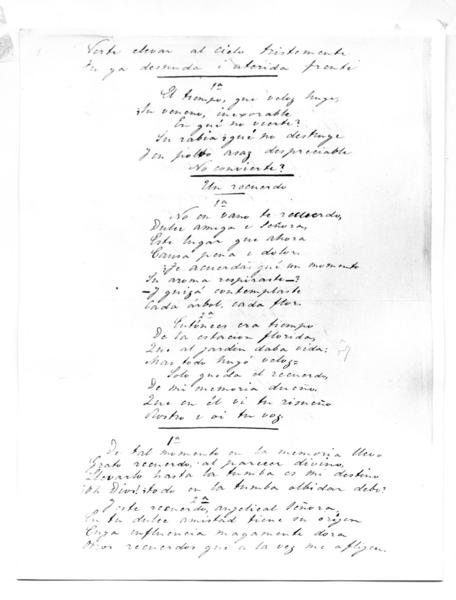 Verte elevar al cielo tristemente
Tu ya desnuda i aterida frente
1ª
El tiempo, que veloz huye,
Su veneno, inexorable
En qué no vierte?
Su rabia qué no destruye
I en polvo asaz despreciable
No convierte?
Un recuerdo
1ª
No en vano te recuerdo,
Dulce amiga e Señora,
Este lugar que ahora
Causa pena e dolor.
Te acuerdas qué un momento
Su aroma respiraste—?
—I quizá contemplaste
Cada árbol, cada flor.
2ª
Entónces era tiempo
De la estacion florida,
Que al jardin daba vida:
Mas todo huyó veloz—
Solo queda el recuerdo,
De mi memoria dueño,
Que en él vi tu risueño
Rostro e oí tu voz.
1ª
De tal momento en la memoria llevo
Grato recuerdo, al parecer divino,
Llevarlo hasta la tumba es mi destino
Oh Dios! todo en la tumba olvidar debo?
2ª
I este recuerdo, angelical Señora,
En tu dulce amistad tiene su oríjen
Cuya influencia magamente dora
Otros recuerdos que a la vez me aflijen.